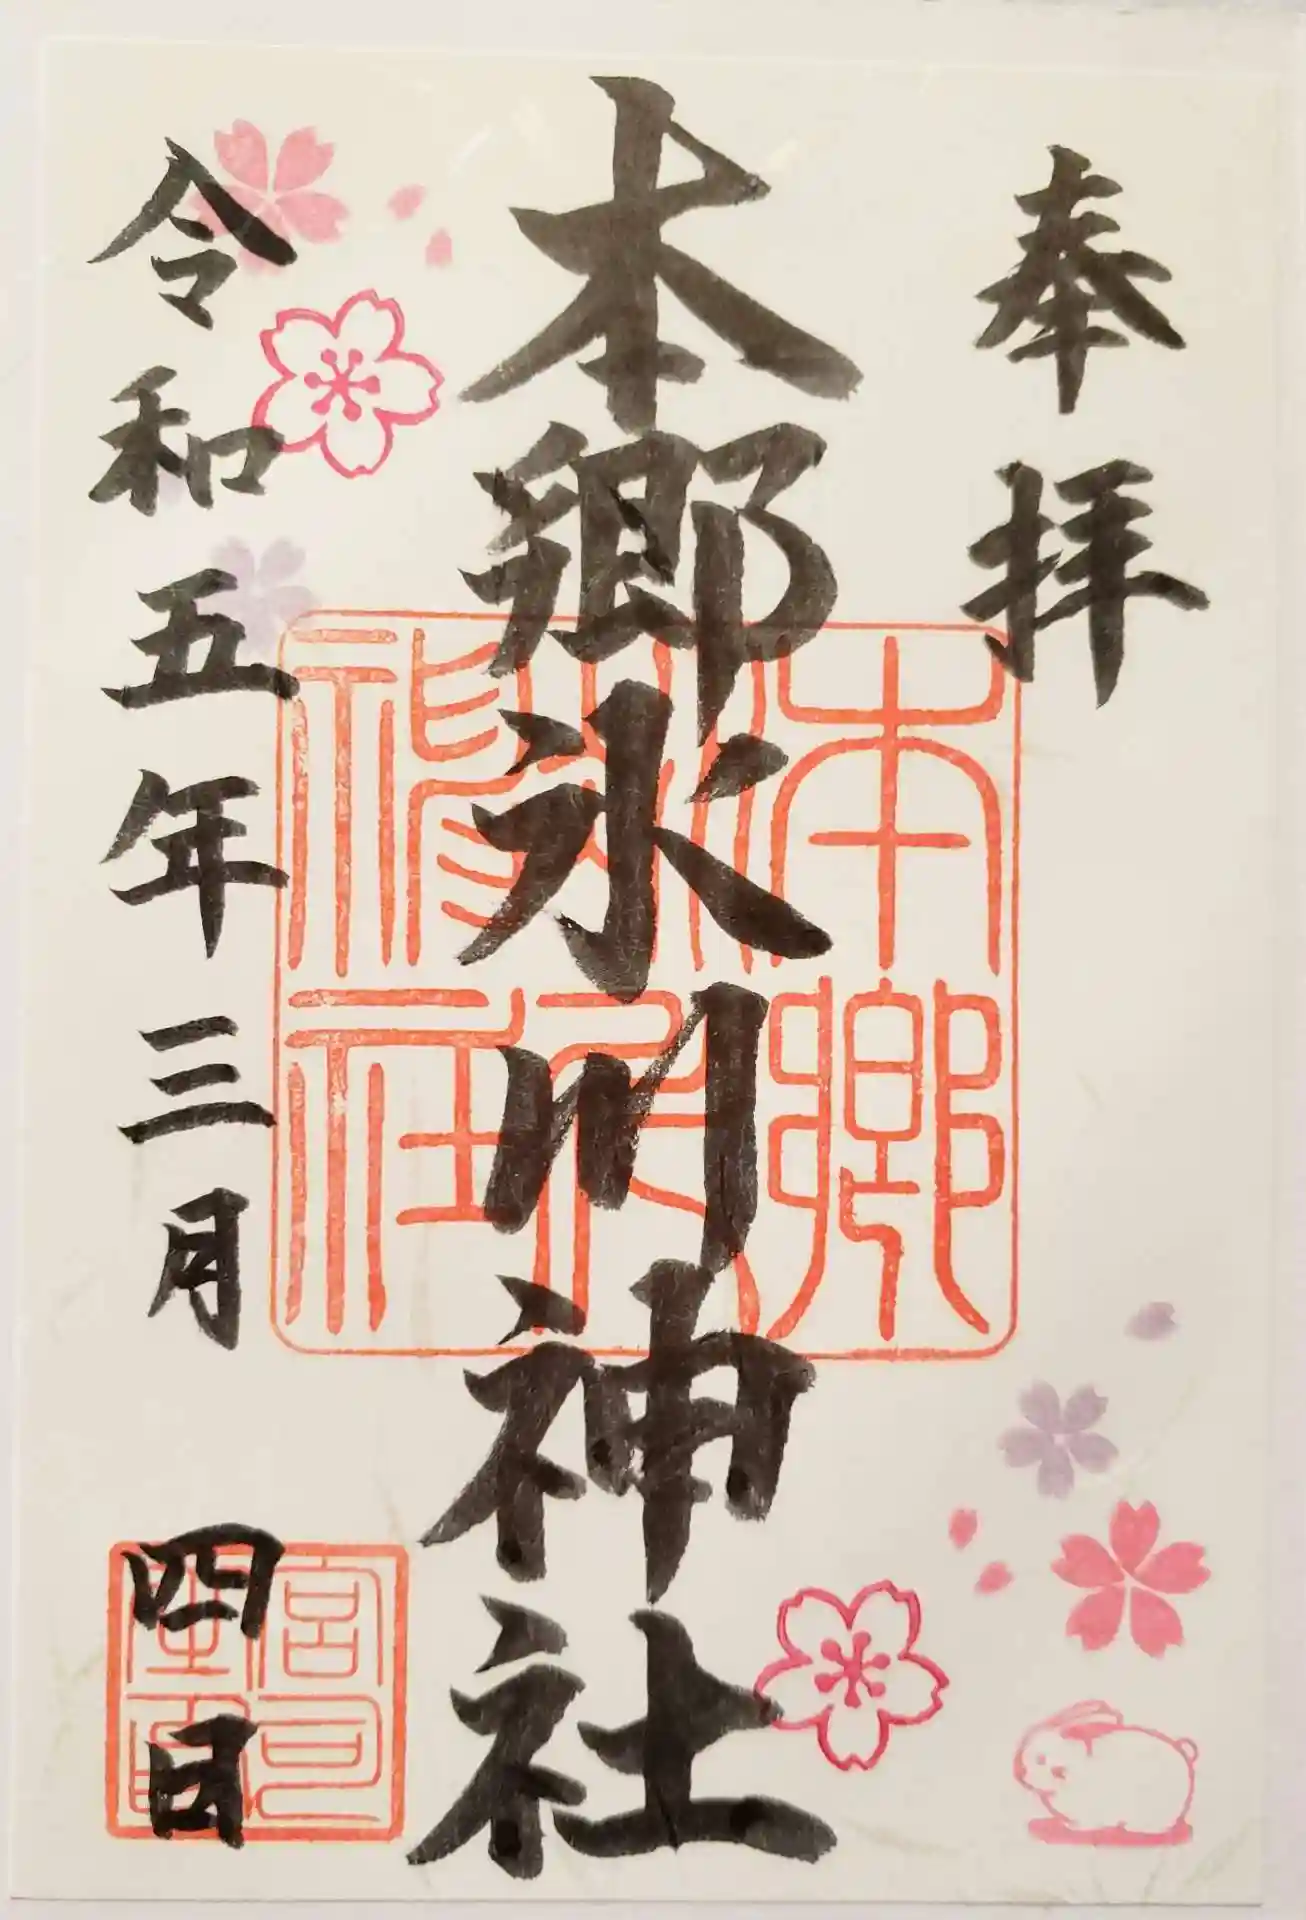 奉拝
本郷氷川神社
令和五年三月四日
本郷
氷川
神社